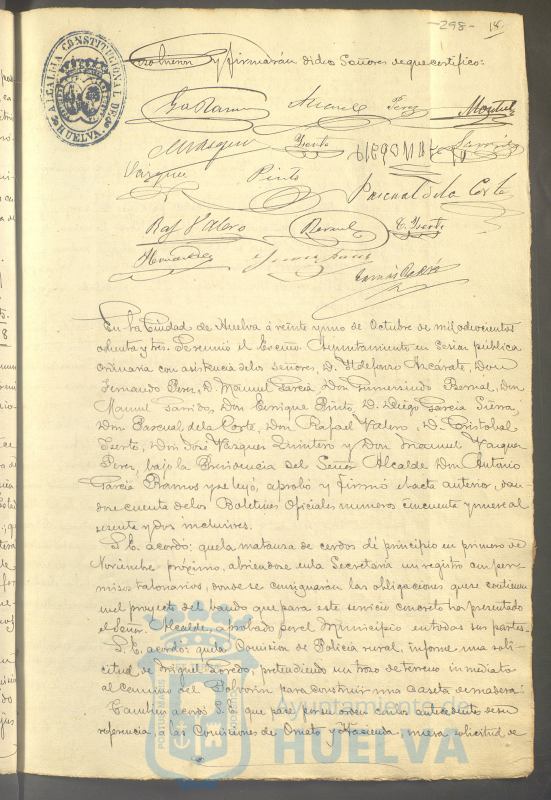 -298- 18
ALCALDIA CONSTITUCIONAL DE HUELVA
resolvieron y firmarán dichos Señores de que certifico:
Ga Ramos Manuel Perez
Vazquez Pinto Pascual de la Corte
Raf Valero Bernal C. Yserte
Hernandez
En la Ciudad de Huelva á veinte y uno de Octubre de mil ochocientos
ochenta y tres. Se reunió el Excmo. Ayuntamiento en Sesion pública
ordinaria con asistencia de los señores, D. Ildefonso Azcárate, Don
Fernando Perez, D. Manuel García, Don Gumersindo Bernal, Don
Manuel Garrido, Don Enrique Pinto, D. Diego García
Don Pascual de la Corte, Don Rafael Valero, D. Cristobal
Yserte, Don José Vazquez Quintero y Don Manuel Vazquez
Perez, bajo la Presidencia del Señor Alcalde Don Antonio
García Ramos y se leyó, aprobó y firmó el acta anterior, dan-
dose cuenta de los Boletines Oficiales numeros cincuenta y nueve al
sesenta y dos inclusives.
S. E. acordó: que la matanza de cerdos dé principio en primero de
Noviembre próximo, abriendose en la Secretaría un registro con per-
misos talonarios, donde se consignarán las obligaciones que se contienen
en el proyecto del bando que para este servicio concreto ha presentado
el Señor Alcalde, aprobado por el Municipio en todas sus partes.
S. E. acordó: que la Comision de Policía rural, informe una soli-
citud de Miguel pretendiendo un trozo de terreno inmediato
al Camino del Polvorin para construir una caseta de madera.
Tambien acordó S. E. que pase por su orden con los antecedentes de su
referencia, á las Comisiones de Ornato y Hacienda, una solicitud de
PORTUS MARIS
Ayuntamiento de
HUELVA